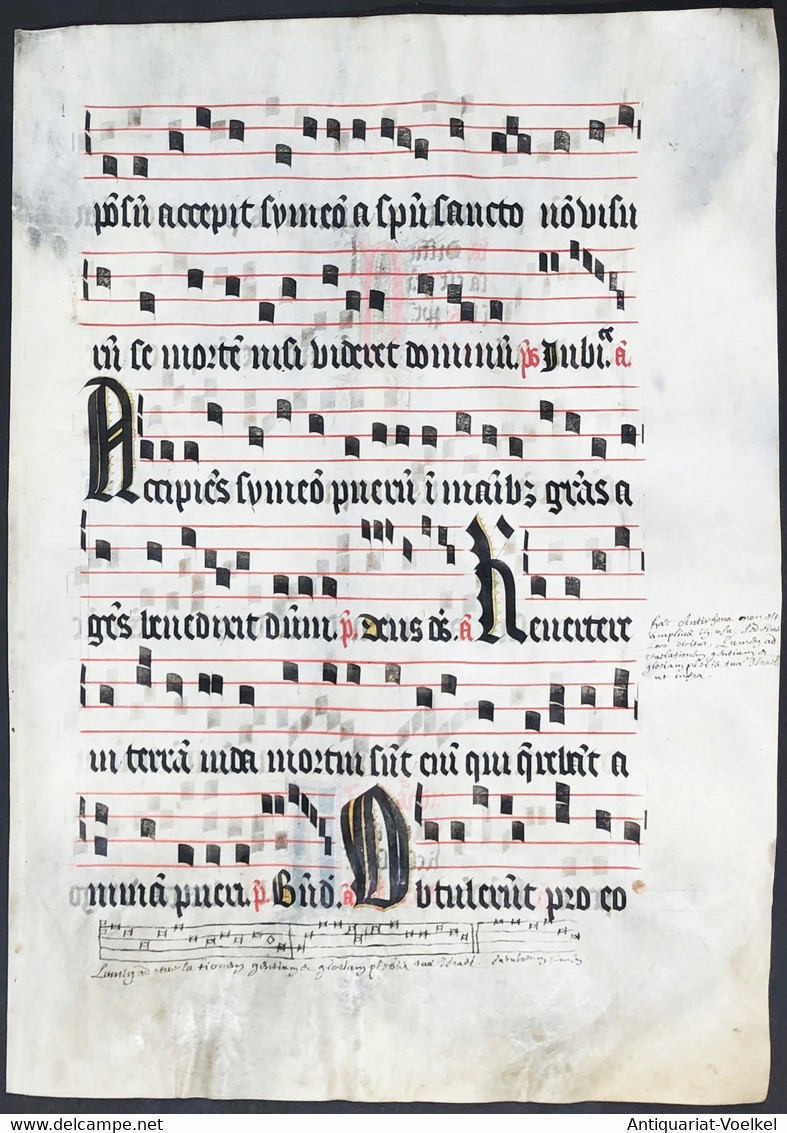 põsũ accepit symeõ a spũ sancto nõ visu
rũ se mortẽ nisi videret dominũ. ps Iubi. ce ã.
Accipiẽs symeõ puerũ ĩ maĩbʒ gr̃as a
gẽs benedixit dũm. p̃. Deus dš. ã Revertere
in terrã iuda mortui sũt eni qui q̃rebãt a
nimã pueri. p̃. Bñd̃. ã Obtulerũt pro eo
hæc Antiphona non est
amplius in usu. sed eius
loco dicitur. Lumen ad
revelationem gentium et
gloriam plebis tuæ Israel
ut infra.
Lumen ad revelationem gentium et gloriam plebis tuæ Israel.
Antiquariat-Voelkel